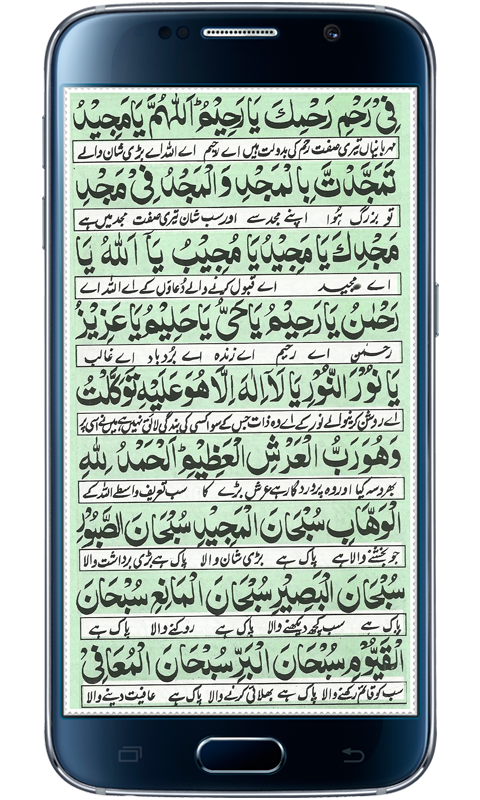 فِیْ رَحْمِ رَحْمِكَ يَا رَحِيْمُ اَللّٰهُمَّ يَا مَجِيْدُ
مہربانیاں تیری صفت رحم کی بدولت ہیں اے رحیم اے اللہ اے بڑی شان والے
تَمَجَّدْتَّ بِالْمَجْدِ وَالْمَجْدُ فِیْ مَجْدِ
تو بزرگ ہوا اپنے مجد سے اور سب شان تیری صفت مجد میں ہے
مَجْدِكَ يَا مَجِيْدُ يَا مُجِيْبُ يَآ اَللّٰهُ يَا
اے مجید اے قبول کرنے والے دُعاؤں کے اے اللہ اے
رَحْمٰنُ يَا رَحِيْمُ يَا حَیُّ يَا حَلِيْمُ يَا عَزِيْزُ
رحمٰن اے رحیم اے زندہ اے بُردباد اے غالب
يَا نُوْرَ النُّوْرِ يَا لَآ اِلٰهَ اِلَّا هُوَ عَلَيْهِ تَوَكَّلْتُ
اے روشن کرنیوالے نور کے اے وہ ذات جس کے سوا کسی کی بندگی لائق نہیں ہے میں نے اسی پر
وَهُوَ رَبُّ الْعَرْشِ الْعَظِيْمِ اَلْحَمْدُ لِلّٰهِ
بھروسہ کیا اور وہ پروردگار ہے عرش بڑے کا سب تعریف واسطے اللہ کے
الْوَهَّابِ سُبْحَانَ الْمَجِيْدِ سُبْحَانَ الصَّبُوْرِ
جو بخشنے والا ہے پاک ہے بڑی شان والا پاک ہے بڑی برداشت والا
سُبْحَانَ الْبَصِيْرِ سُبْحَانَ الْمَانِعِ سُبْحَانَ
پاک ہے سب کچھ دیکھنے والا پاک ہے روکنے والا پاک ہے
الْقَيُّوْمِ سُبْحَانَ الْبَرِّ سُبْحَانَ الْمُعَافِیْ
سب کو قائم رکھنے والا پاک ہے بھلائی کرنے والا پاک ہے عافیت دینے والا